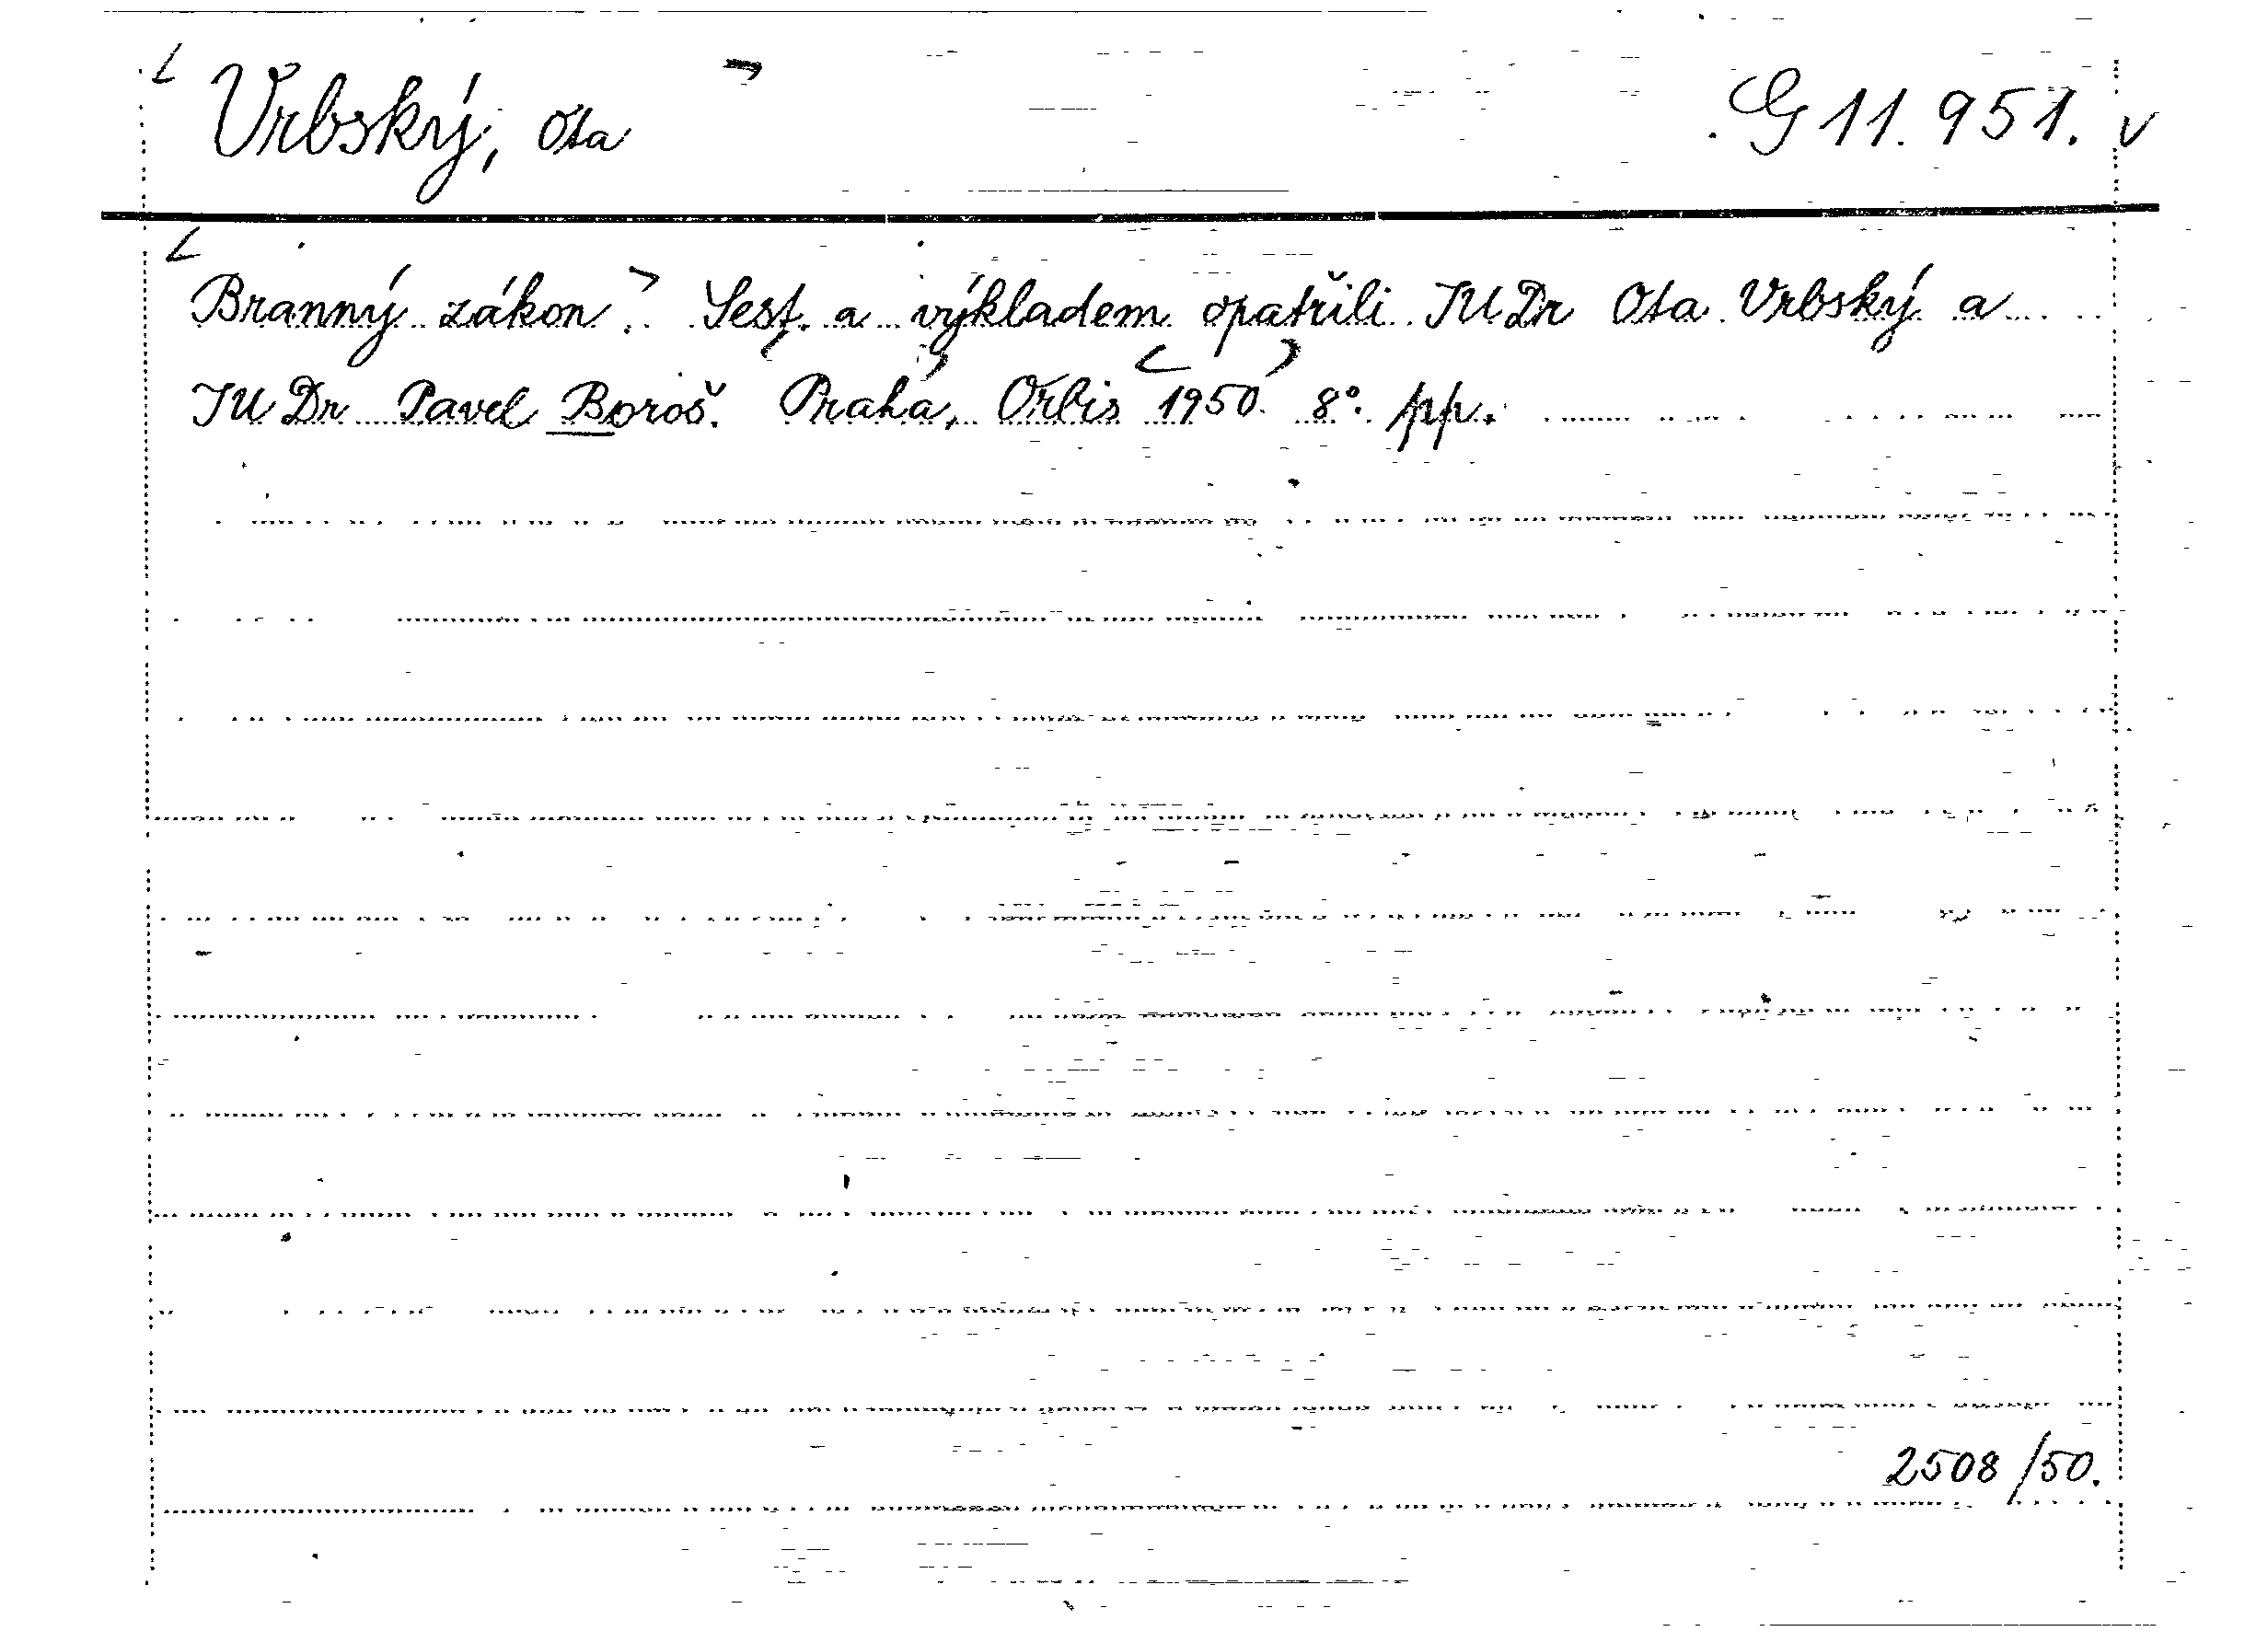 Vrbský, Ota G 11.951. v
Branný zákon. Sest. a výkladem opatřili JUDr Ota Vrbský a
JUDr Pavel Boroš. Praha, Orbis 1950. 8°. pp.
2508/50.